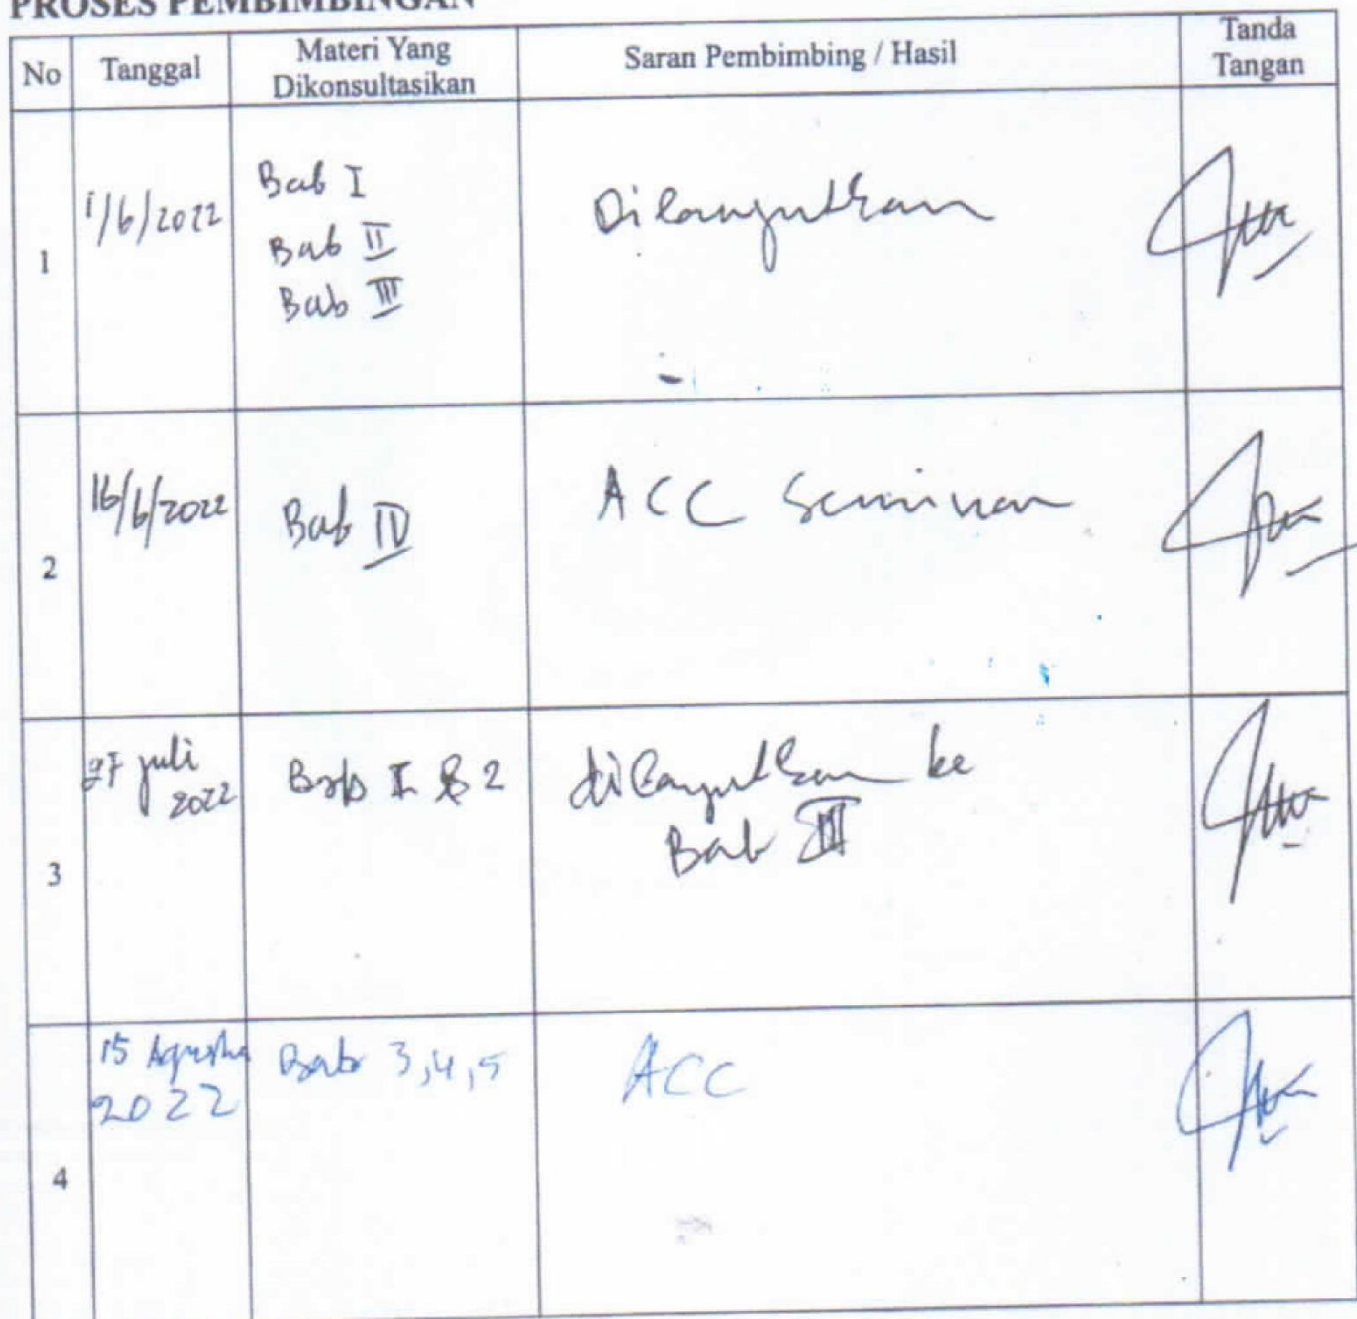 PROSES PEMBIMBINGAN
No Tanggal Materi Yang Dikonsultasikan Saran Pembimbing / Hasil Tanda Tangan
1 1/6/2022 Bab I Dilanjutkan
Bab II
Bab III
2 16/6/2022 Bab IV ACC Seminar
3 27 juli 2022 Bab I & 2 dilanjutkan ke
Bab III
4 15 Agustus 2022 Bab 3,4,5 ACC